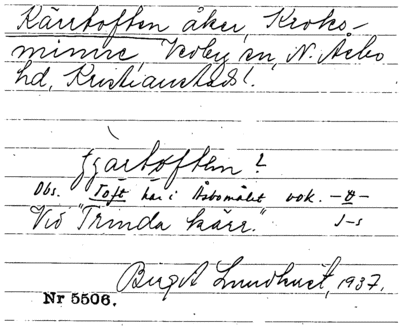 Kärrtoften åker, Kroks-
minne, Vedby sn, N. Åsbo
hd, Kristianstads l.
çärtoften?
Obs. Toft har i Åsbomålet vok. -å-
J-s
Vid "Trinda kärr."
Birgit Lundkvist, 1937.
Nr 5506.